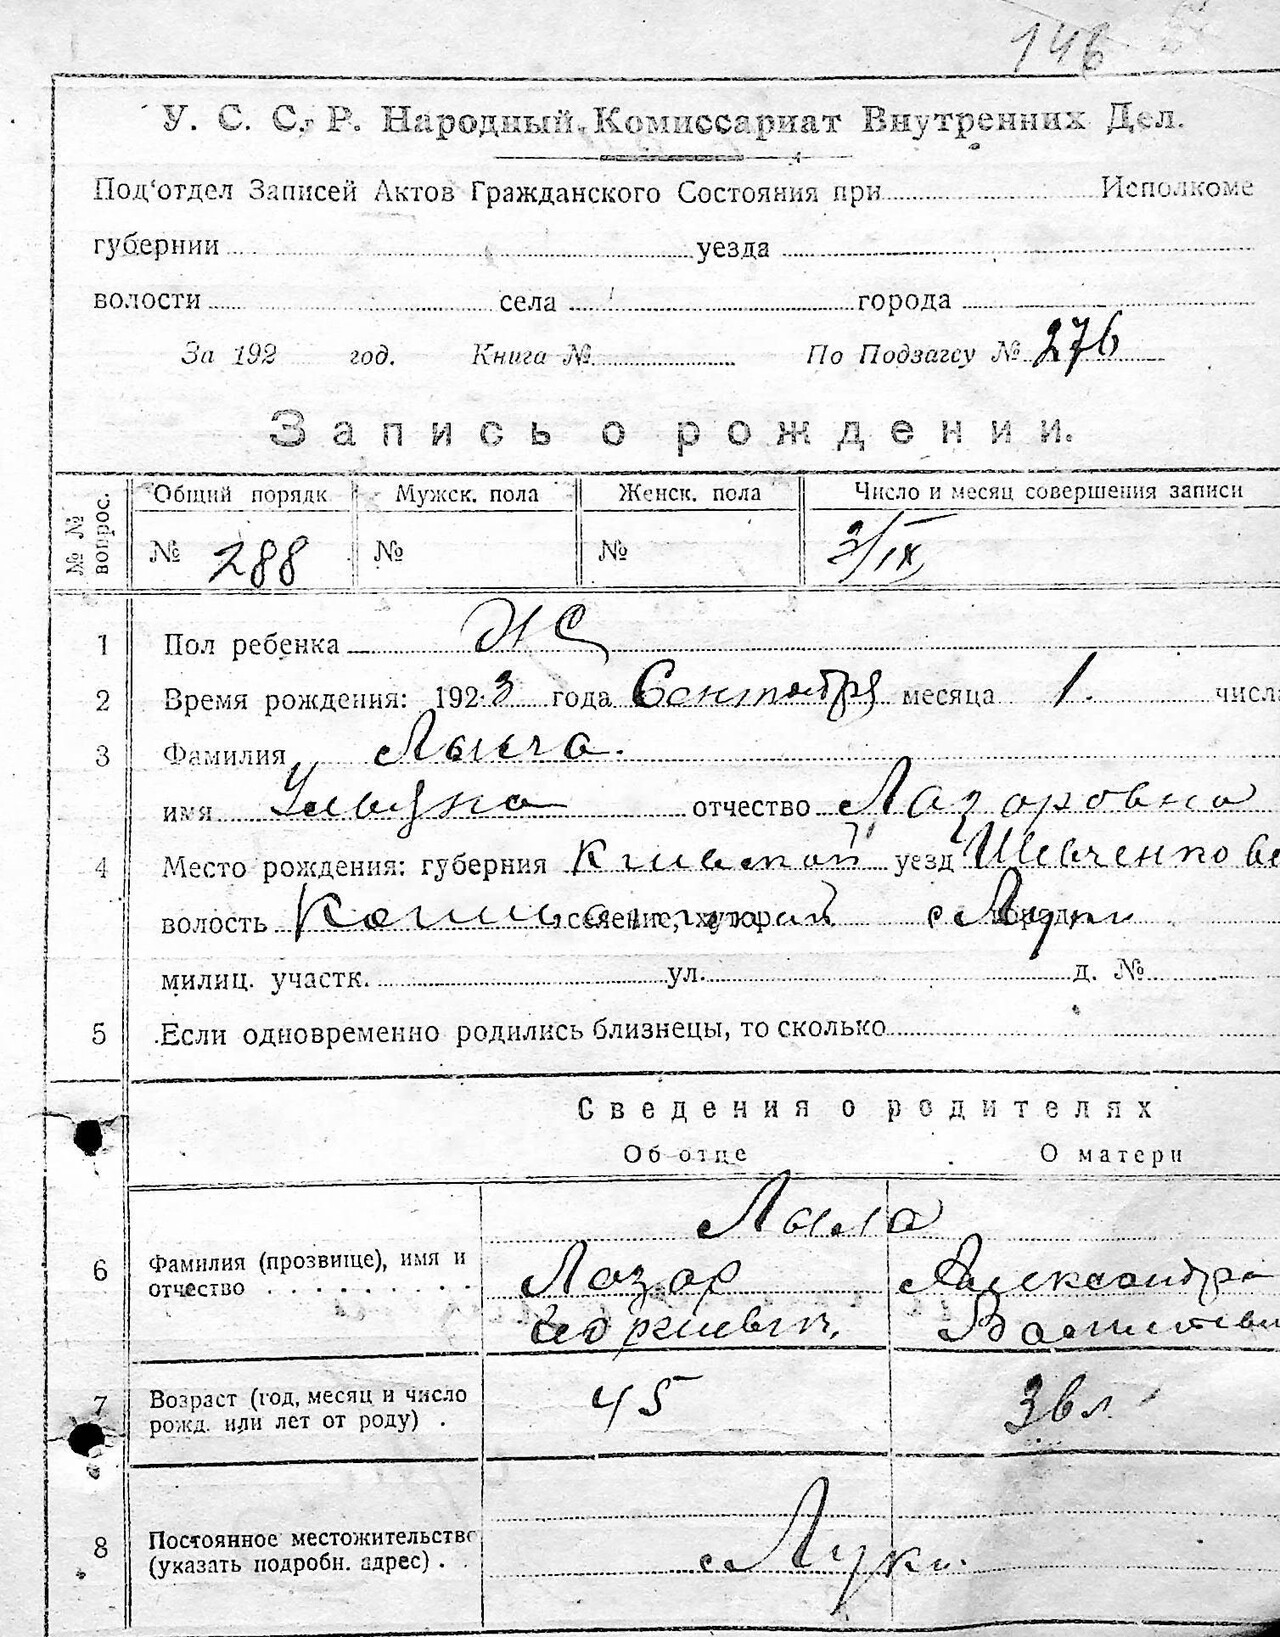 146
У. С. С. Р. Народный Комиссариат Внутренних Дел.
Под'отдел Записей Актов Гражданского Состояния при Исполкоме
губернии уезда
волости села города
За 192 год. Книга № По Подзагсу № 276
Запись о рождении.
№ № вопрос. Общий порядк Мужск. пола Женск. пола Число и месяц совершения записи
№ 288 № № 3/IX
1 Пол ребенка ж
2 Время рождения: 1923 года Сентября месяца 1. числа
3 Фамилия
имя отчество Лазаровна
4 Место рождения: губерния Киевской уезд Шевченков
волость селение, хутор город с Луки
милиц. участк. ул. д. №
5 Если одновременно родились близнецы, то сколько
Сведения о родителях
Об отце О матери
6 Фамилия (прозвище), имя и
отчество Лазар Александра
7 Возраст (год, месяц и число
рожд. или лет от роду) . 45 36 л.
8 Постоянное местожительство
(указать подробн. адрес) . с Луки.